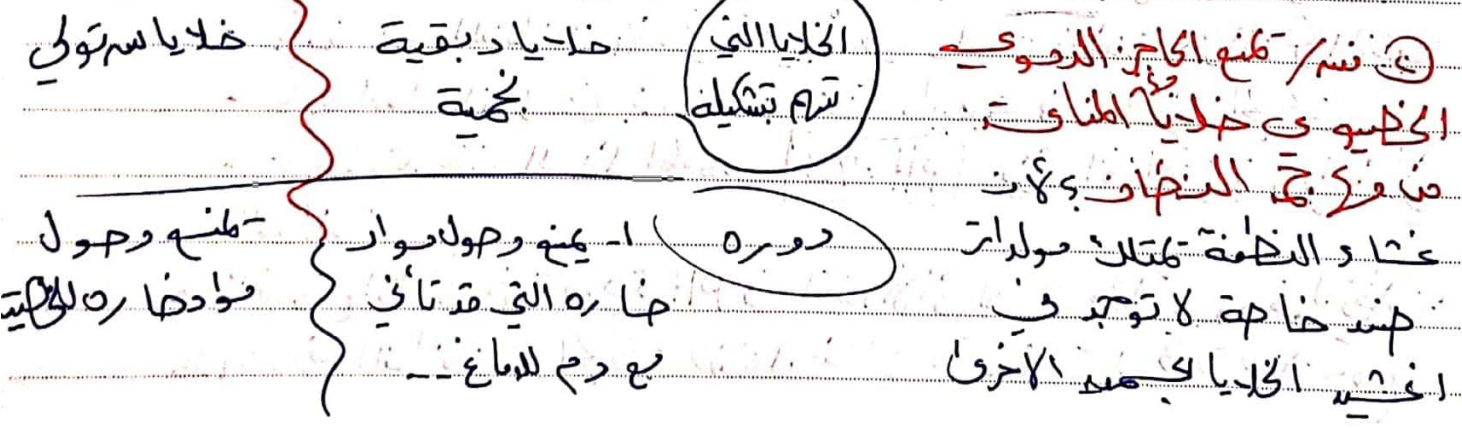 فسر / تمنع الحاجز الدموي
الخصيوي خلايا المناعة
من مهاجمة النطاف؟ لأن
غشاء النطفة تمتلك مولدات
ضد خاصة لا توجد في
اغشية الخلايا الجسمية الأخرى
الخلايا التي
تسهم بتشكيله
خلايا دبقية
نجمية
خلايا سرتولي
دوره
1- يمنع وصول مواد
ضاره التي قد تأتي
مع دم للدماغ --
تمنع وصول
مواد ضاره للخصية